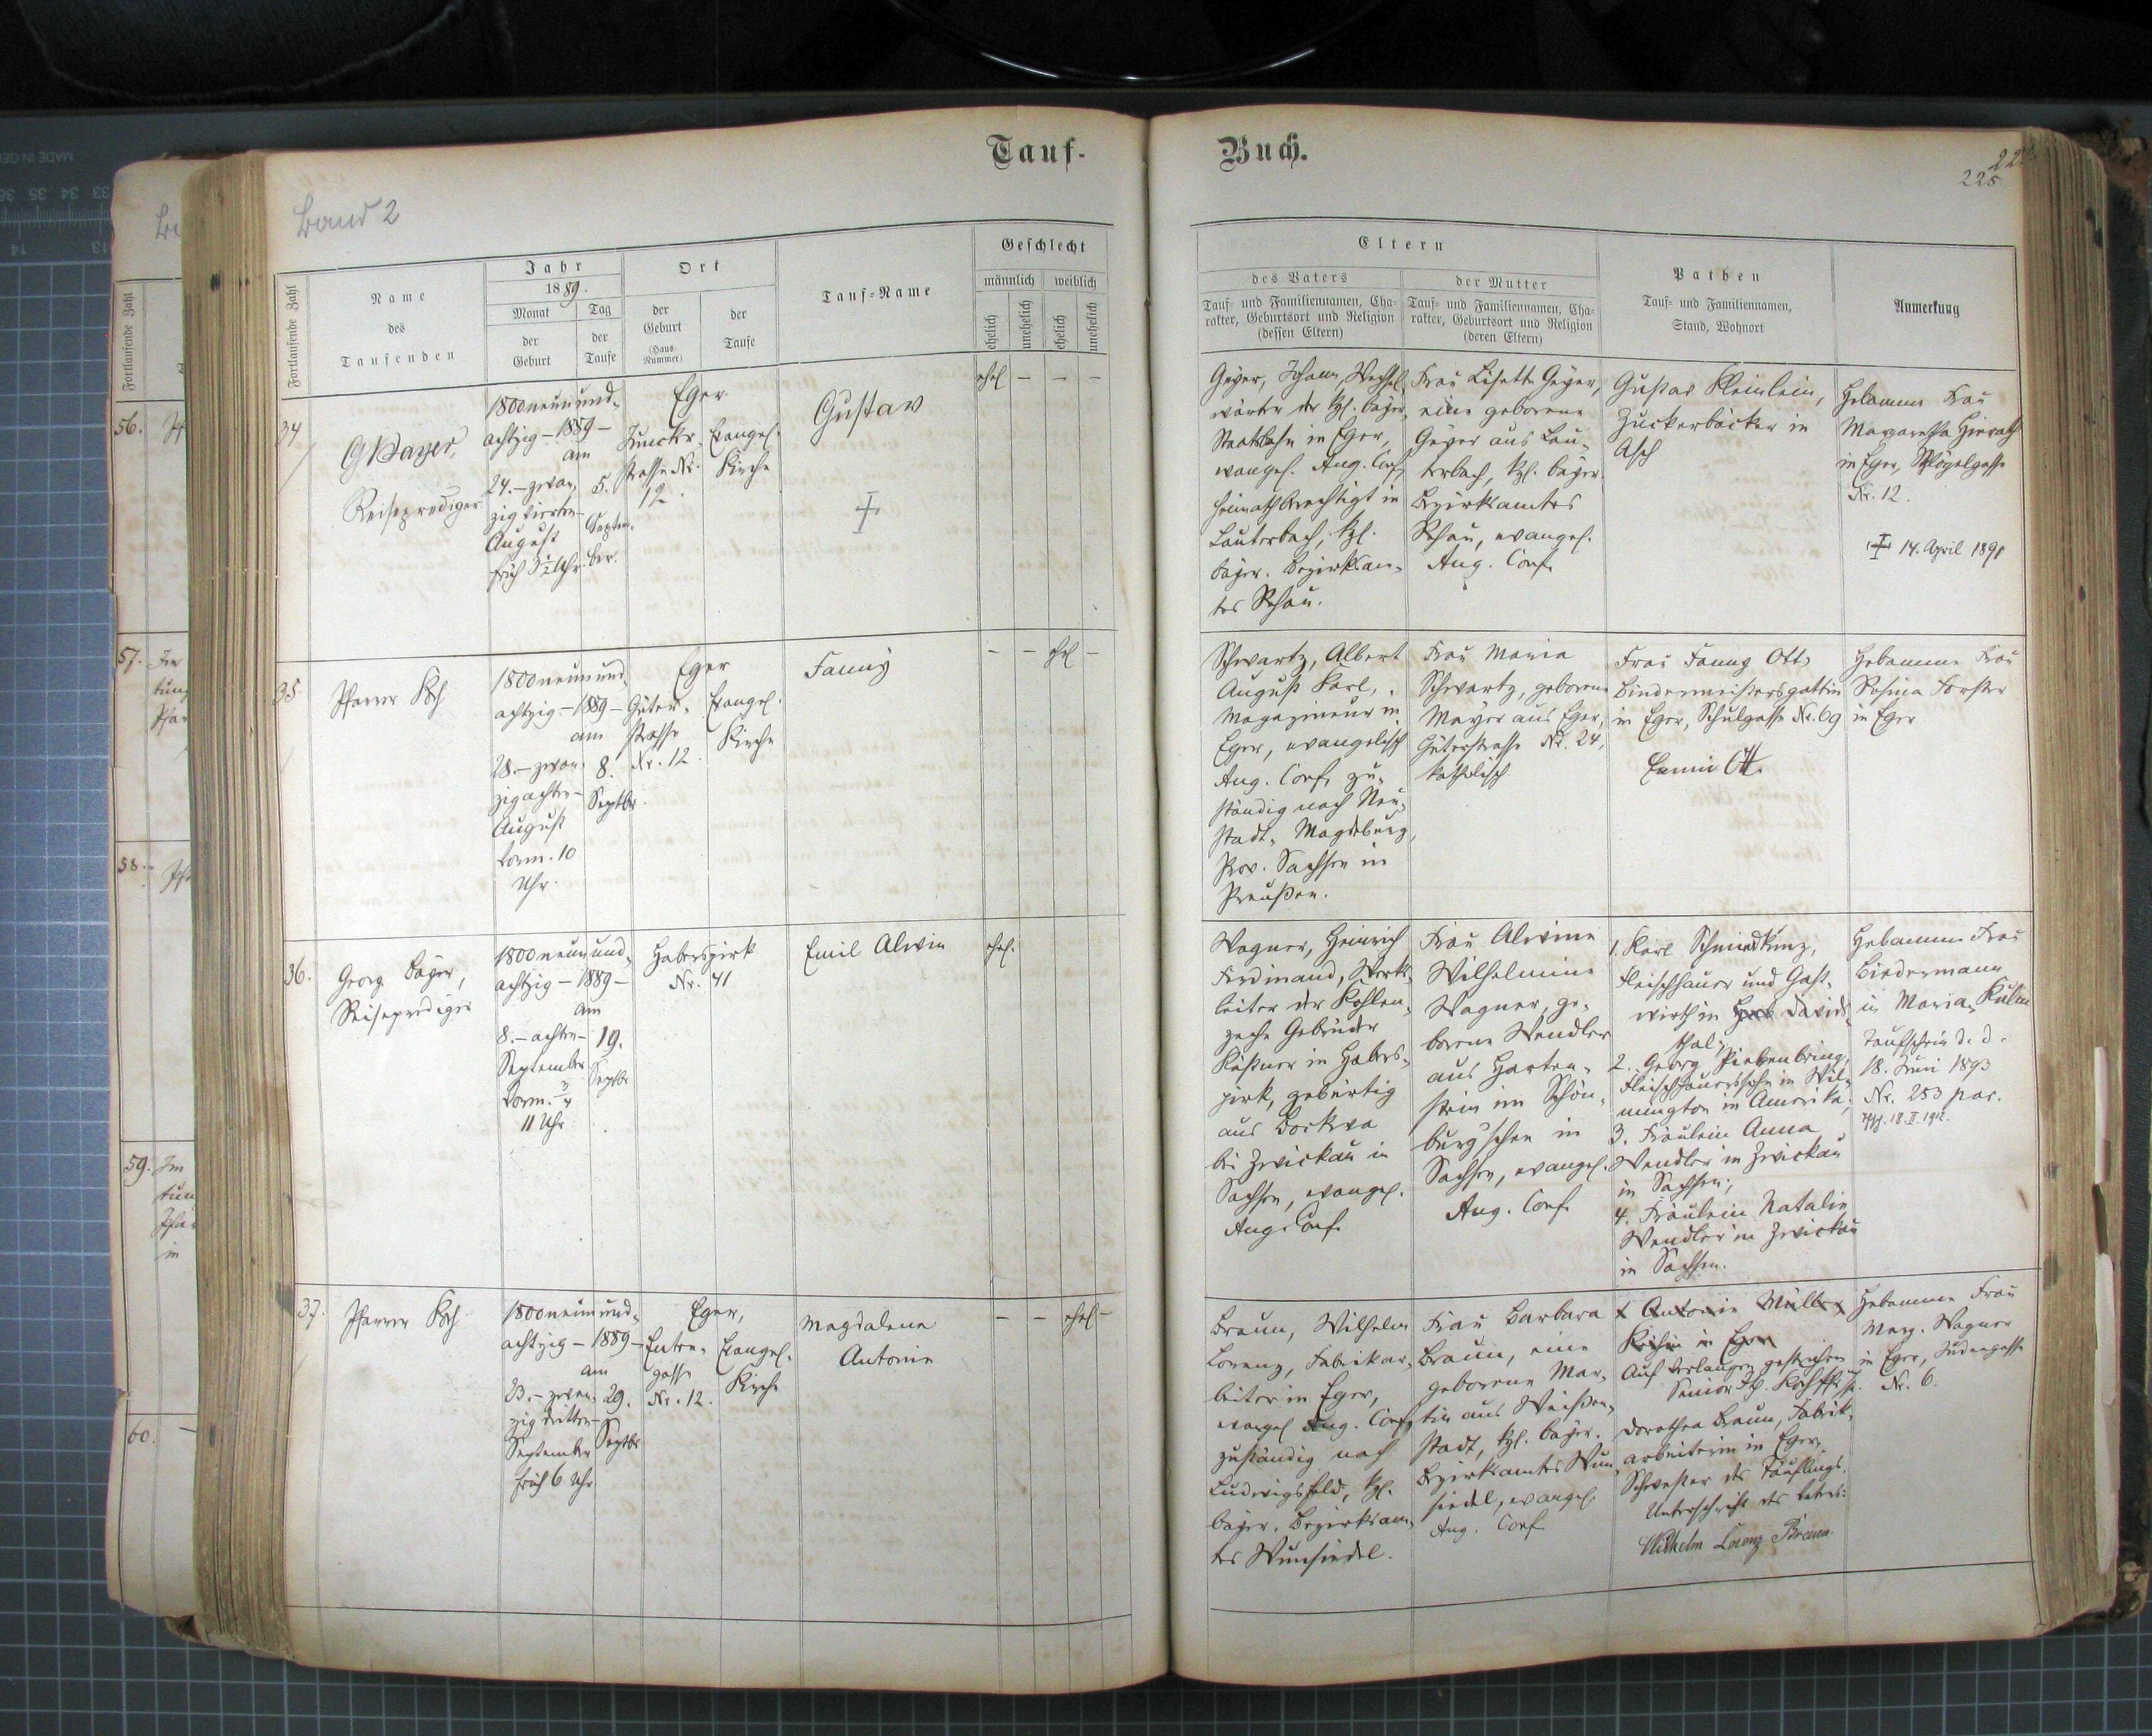 Tauf-
Buch.
225
Band 2
Fortlaufende Zahl
Name
des
Taufenden
Jahr
1889.
Monat
der
Geburt
Tag
der
Taufe
Ort
der
Geburt
(Haus-
Nummer)
der
Taufe
Tauf-Name
Geschlecht
männlich
weiblich
ehelich
unehelich
ehelich
unehelich
Eltern
des Vaters
Tauf- und Familiennamen, Cha-
rakter, Geburtsort und Religion
(dessen Eltern)
der Mutter
Tauf- und Familiennamen, Cha-
rakter, Geburtsort und Religion
(deren Eltern)
Pathen
Tauf- und Familiennamen,
Stand, Wohnort
Anmerkung
34
Reiseprediger
1800neunund-
achtzig – 1889 –
am
24. – zwan-
zig vierten –
August
früh 3½ Uhr.
5.
Septem-
ber.
Eger
strasse Nr.
12.
Evangel.
Kirche
Gustav
ehel – – –
Geyer, Johann, Wechsel-
wärter der kgl. bayer.
Staatsbahn in Eger,
evangel. Aug. Conf.
heimathberechtigt in
Lauterbach, kgl.
bayer. Bezirksam-
tes Rehau.
Frau Lisette Geyer,
eine geborene
Geyer aus Lau-
terbach, kgl. bayer.
Bezirksamtes
Rehau, evangel.
Aug. Conf.
Gustav Kleinlein,
Zuckerbäcker in
Asch
Hebamme Frau
Margaretha
in Eger,
Nr. 12.
14. April 1891
35
Pfarrer
1800neunund-
achtzig – 1889 –
am
28. – zwan-
zigachten –
August
Vorm. 10
Uhr.
8.
Septbr.
Eger
Güter-
strasse
Nr. 12.
Evangel.
Kirche
Fanny
– – ehel –
Schwartz, Albert
August Karl,
Magazineur in
Eger, evangelisch
Aug. Conf. zu-
ständig nach Neu-
stadt-Magdeburg,
Prov. Sachsen in
Preußen.
Frau Maria
Schwartz, geborene
Mayer aus Eger,
Güterstrasse Nr. 24,
katholisch.
Frau Fanny Ott,
Bindermeistersgattin
in Eger, Schulgasse Nr. 69
Ott.
Hebamme Frau
Rosina Forster
in Eger
36.
Georg Bayer,
Reiseprediger
1800neunund-
achtzig – 1889 –
am
8. – achten –
September
Vorm. ¾
11 Uhr
19.
Septbr
Haberspirk
Nr. 41
Emil Alwin
ehel.
Wagner, Heinrich
Ferdinand, Werks-
leiter der Kohlen-
zeche Gebrüder
in Habers-
pirk, gebürtig
aus Bockwa
bei Zwickau in
Sachsen, evangel.
Aug. Conf.
Frau Alwine
Wilhelmine
Wagner, ge-
borene Wendler
aus Harten-
stein im Schön-
burg'schen in
Sachsen, evangel.
Aug. Conf.
1. Karl Schmiedkunz,
Fleischhauer und Gast-
wirth in Davids-
thal;
2. Georg Piebenbring,
Fleischhauerssohn in Wil-
mington in Amerika;
3. Fräulein Anna
Wendler in Zwickau
in Sachsen;
4. Fräulein Natalie
Wendler in Zwickau
in Sachsen.
Hebamme Frau
Biedermann
in Maria-Kulm
Taufschein d. d.
18. Juni 1893
Nr. 253 par.
18. II. 1912.
37.
Pfarrer
1800neunund-
achtzig – 1889 –
am
23. – zwan-
zig dritten –
September
früh 6 Uhr
29.
Septbr
Eger,
gasse
Nr. 12.
Evangel.
Kirche
Magdalena
Antonie
– – ehel –
Braun, Wilhelm
Lorenz, Fabrikar-
beiter in Eger,
evangel. Aug. Conf.
zuständig nach
Ludwigsfeld, kgl.
bayer. Bezirksam-
tes Wunsiedel.
Frau Barbara
Braun, eine
geborene Mar-
tin aus Weißen-
stadt, kgl. bayer.
Bezirksamtes Wun-
siedel, evangel.
Aug. Conf.
Antonie Müller
Köchin in Eger
Auf Verlangen gestrichen
Senior
Dorothea Braun, Fabrik-
arbeiterin in Eger,
Schwester des Täuflings.
Unterschrift des Vaters:
Wilhelm Lorenz Braun.
Hebamme Frau
Marg. Wagner
in Eger, Judengasse
Nr. 6.
56.
57.
58.
59.
60.